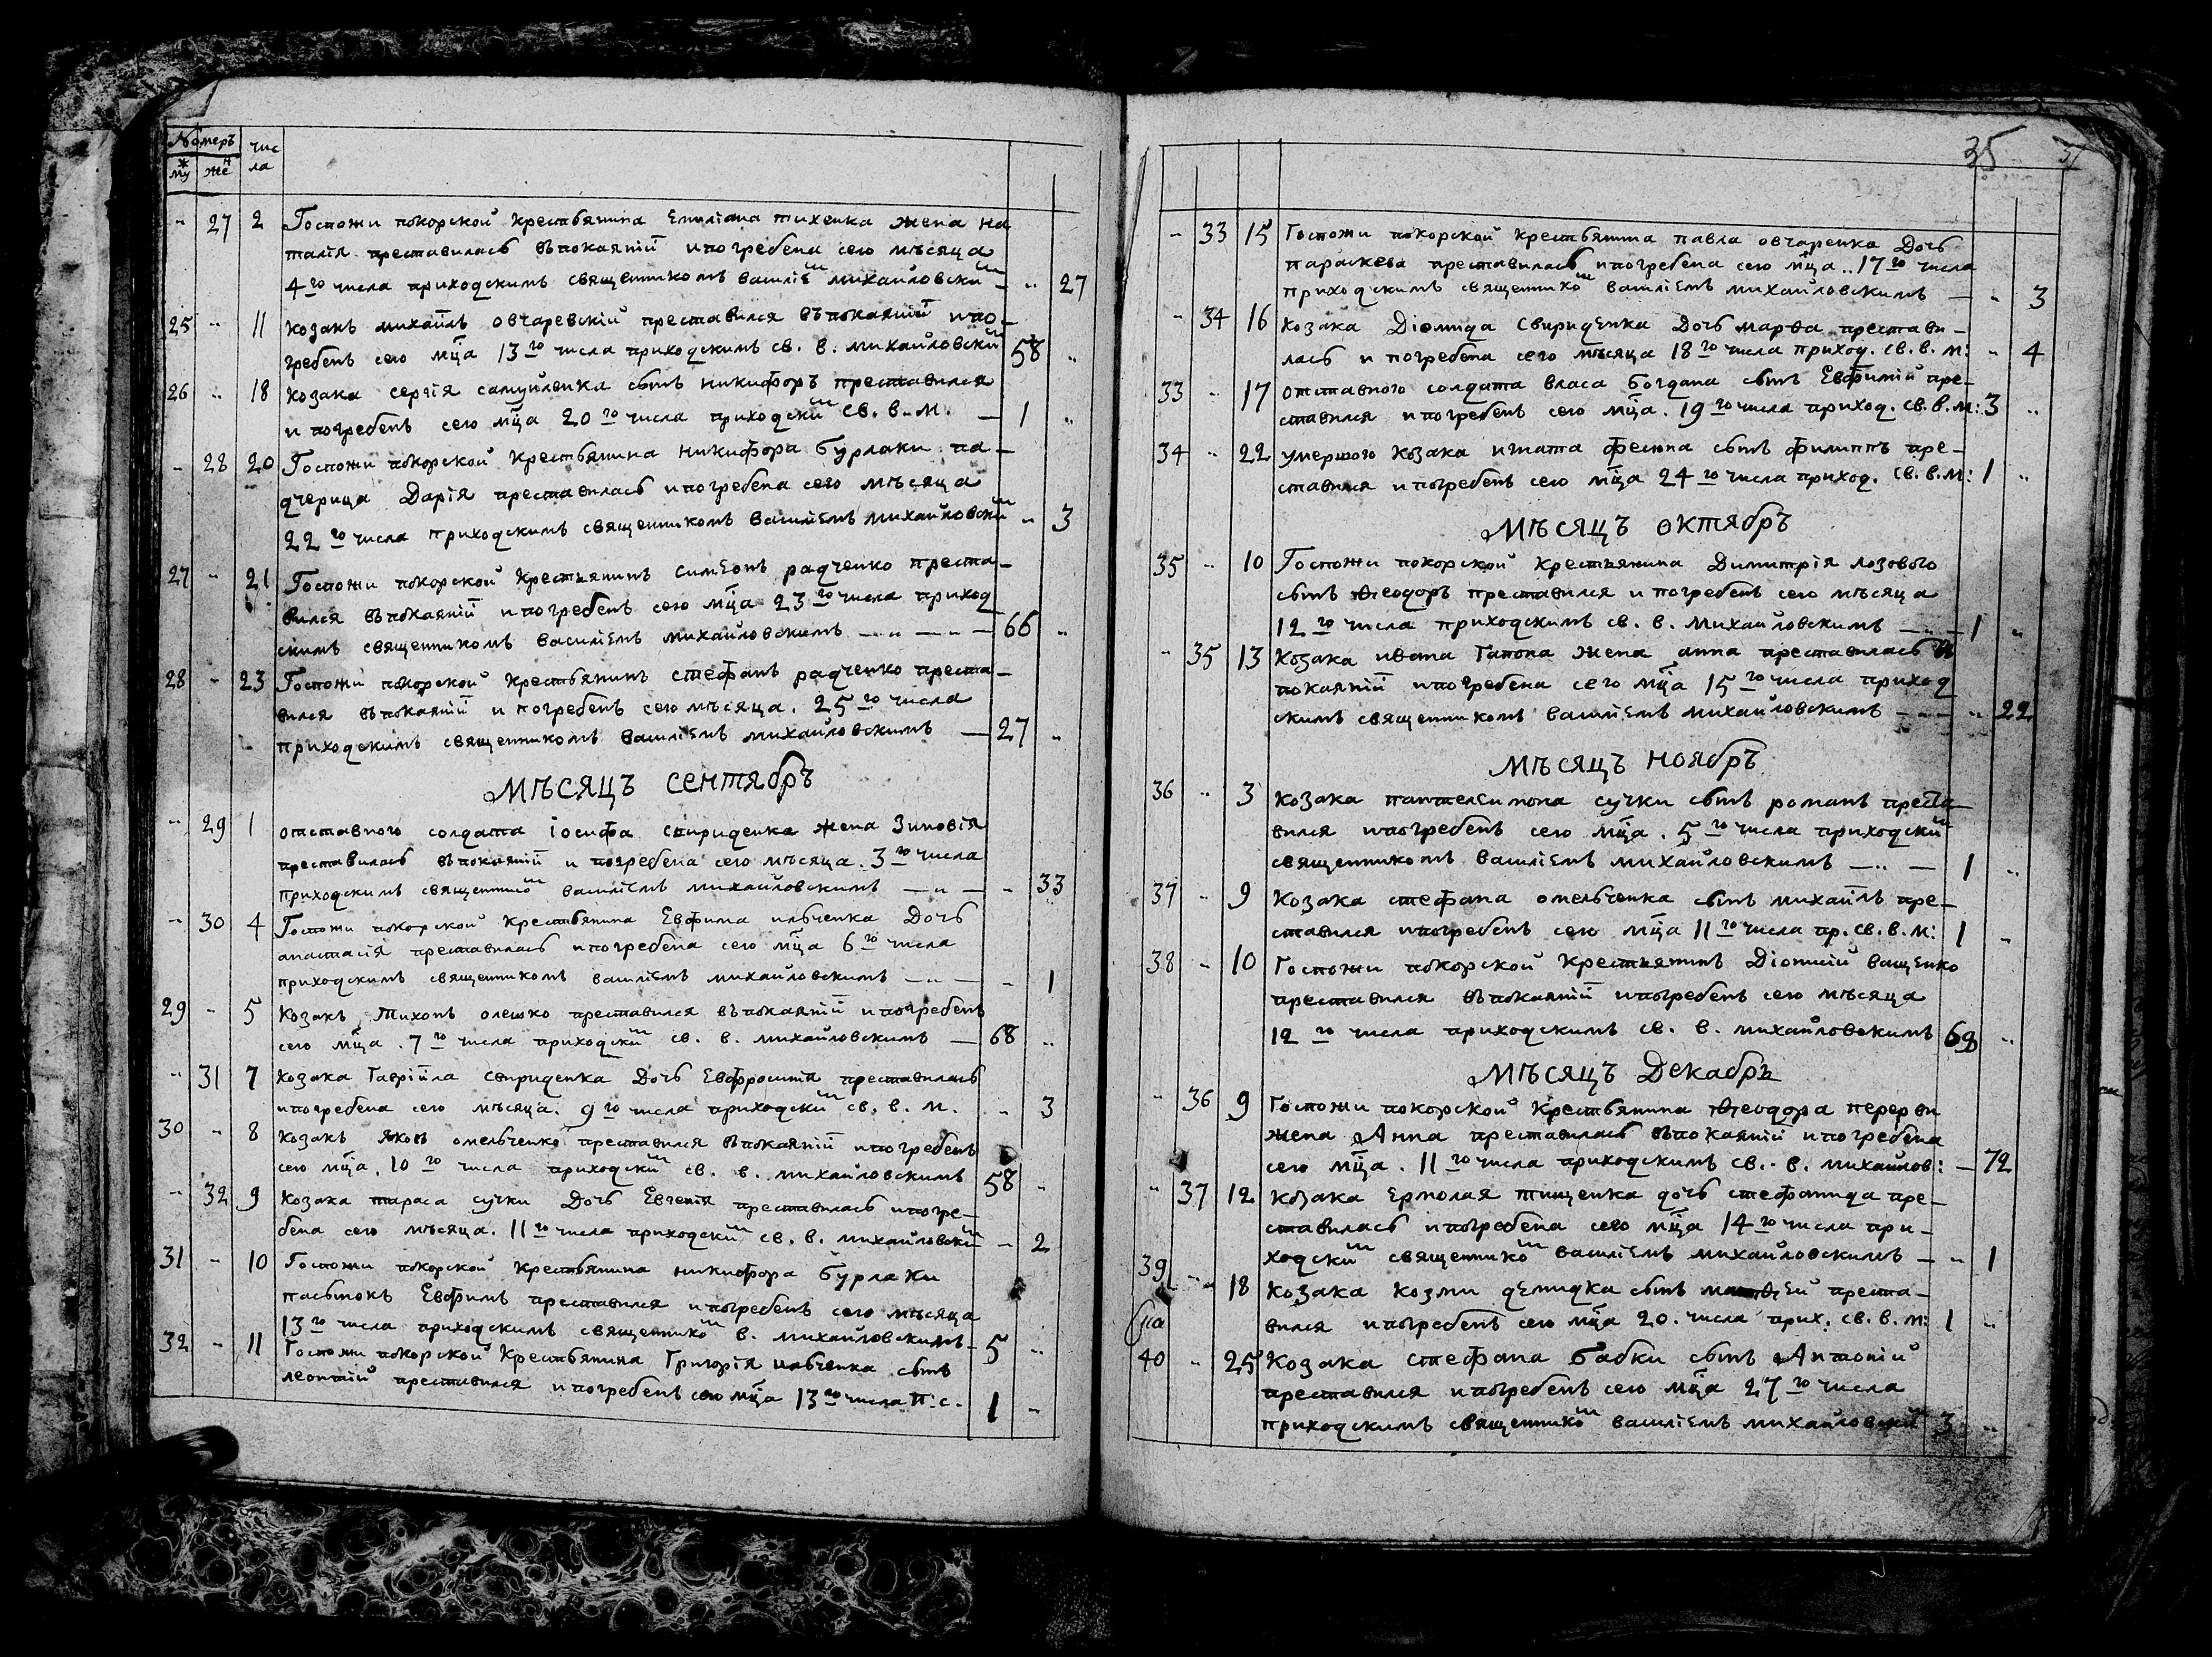 Номеръ чис
му же ла
„ 27 2 Госпожи покорской крестьянина Емиліана тихенка жена На
талія преставилась въ покаяніи и погребена сего мѣсяца
4го числа приходскимъ священникомъ василіем михайловским — „ 27
25 „ 11 козакъ михаилъ овчаревскій преставился въ покаяніи и по-
гребенъ сего мца 13го числа приходскимъ св. в. михайловским 58 „
26 „ 18 козака сергія самуйленка сынъ никифоръ преставился
и погребенъ сего мца 20го числа приходским св. в. м. — 1 „
„ 28 20 Госпожи покорской крестьянина никифора бурлаки па-
дчерица Дарія преставилась и погребена сего мѣсяца
22го числа приходскимъ священникомъ василіемъ михайловским „ 3
27 „ 21 Госпожи покорской крестьянинъ симеонъ радченко преста-
вился въ покаяніи и погребенъ сего мца 23го числа приход
скимъ священникомъ василіемъ михайловскимъ — „ — „ — 66 „
28 „ 23 Госпожи покорской крестьянинъ стефанъ радченко преста-
вился въ покаяніи и погребенъ сего мѣсяца. 25го числа
приходскимъ священникомъ василіемъ михайловскимъ — 27 „
Мѣсяцъ сентябрь
„ 29 1 отставного солдата іосифа свириденка жена Зиновія
преставилась въ покаяніи и погребена сего мѣсяца. 3го числа
приходскимъ священником василіемъ михайловскимъ — „ — „ 33
„ 30 4 Госпожи покорской крестьянина Евфима ильченка Дочь
анастасія преставилась и погребена сего мца 6го числа
приходскимъ священникомъ василіемъ михайловскимъ — „ — „ 1
29 „ 5 Козакъ Тихонъ олешко преставился въ покаяніи и погребенъ
сего мца. 7го числа приходским св. в. михайловскимъ — 68 „
„ 31 7 козака Гавріила свириденка Дочь Евфросинія преставилась
и погребена сего мѣсяца. 9го числа приходским св. в. м. „ 3
30 „ 8 козакъ яковъ омельченко преставился въ покаяніи и погребенъ
сего мца. 10го числа приходским св. в. михайловскимъ 58 „
„ 32 9 козака тараса сучки Дочь Евгенія преставилась и погре-
бена сего мѣсяца. 11го числа приходским св. в. михайловским — 2
31 „ 10 Госпожи покорской крестьянина никифора бурлаки
пасынокъ Евфимъ преставился и погребенъ сего мѣсяца
13го числа приходскимъ священником в. михайловскимъ — 5 „
32 „ 11 Госпожи покорской крестьянина Григорія ильченка сынъ
леонтій преставился и погребенъ сего мца 13го числа п. с. 1 „
35
„ 33 15 Госпожи покорской крестьянина павла овчаренка Дочь
параскева преставилась и погребена сего мца.. 17го числа
приходскимъ священником василіемъ михайловскимъ — „ 3
„ 34 16 козака Діомида свириденка Дочь марѳа престави-
лась и погребена сего мѣсяца 18го числа приход. св. в. м: „ 4
33 „ 17 отставного солдата власа богдана сынъ Евфимій пре-
ставился и погребенъ сего мца. 19го числа приход. св. в. м: 3 „
34 „ 22 умершого козака игната фесюна сынъ филиппъ пре-
ставился и погребенъ сего мца 24го числа приход. св. в. м: 1 „
Мѣсяцъ октябрь
35 „ 10 Госпожи покорской крестьянина Димитрія лозового
сынъ ѳеодоръ преставился и погребенъ сего мѣсяца
12го числа приходскимъ св. в. михайловскимъ — „ — 1 „
„ 35 13 козака ивана Гапона жена анна преставилась въ
покаяніи и погребена сего мца 15го числа приход
скимъ священникомъ василіемъ михайловскимъ — — „ 22
Мѣсяцъ ноябрь
36 „ 3 козака пантелеимона сучки сынъ романъ преста-
вился и погребенъ сего мца. 5го числа приходским
священникомъ василіемъ михайловскимъ — „ — 1 „
37 „ 9 козака стефана омельченка сынъ михаилъ пре-
ставился и погребенъ сего мца 11го числа пр. св. в. м: 1 „
38 „ 10 Госпожи покорской крестьянинъ Діонисій ващенко
преставился въ покаяніи и погребенъ сего мѣсяца
12го числа приходскимъ св. в. михайловскимъ 68 „
Мѣсяцъ Декабрь
„ 36 9 Госпожи покорской крестьянина ѳеодора перерви
жена Анна преставилась въ покаяніи и погребена
сего мца. 11го числа приходскимъ св. в. михайлов: — 72
„ 37 12 козака ермолая тищенка дочь стефанида пре-
ставилась и погребена сего мца 14го числа при-
ходским священником василіемъ михайловскимъ — „ 1
39 „ 18 козака козми демидка сынъ матѳей преста-
вился и погребенъ сего мца 20. числа прих. св. в. м: 1 „
40 „ 25 козака стефана бабки сынъ Антоній
преставился и погребенъ сего мца 27го числа
приходскимъ священником василіемъ михайловским 3 „